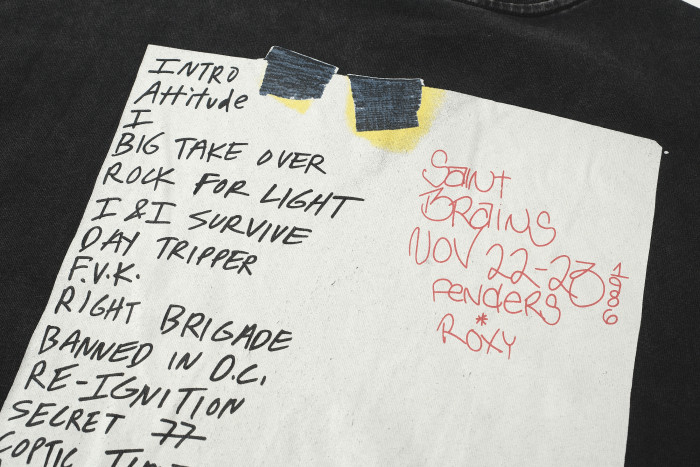 INTRO
Attitude
I
BIG TAKE OVER
ROCK FOR LIGHT
I & I SURVIVE
DAY TRIPPER
F.V.K.
RIGHT BRIGADE
BANNED IN D.C.
RE-IGNITION
SECRET 77
COPTIC
SaiNT
BRaiNS
NOV 22-23 1986
FENDERS
*
ROXY